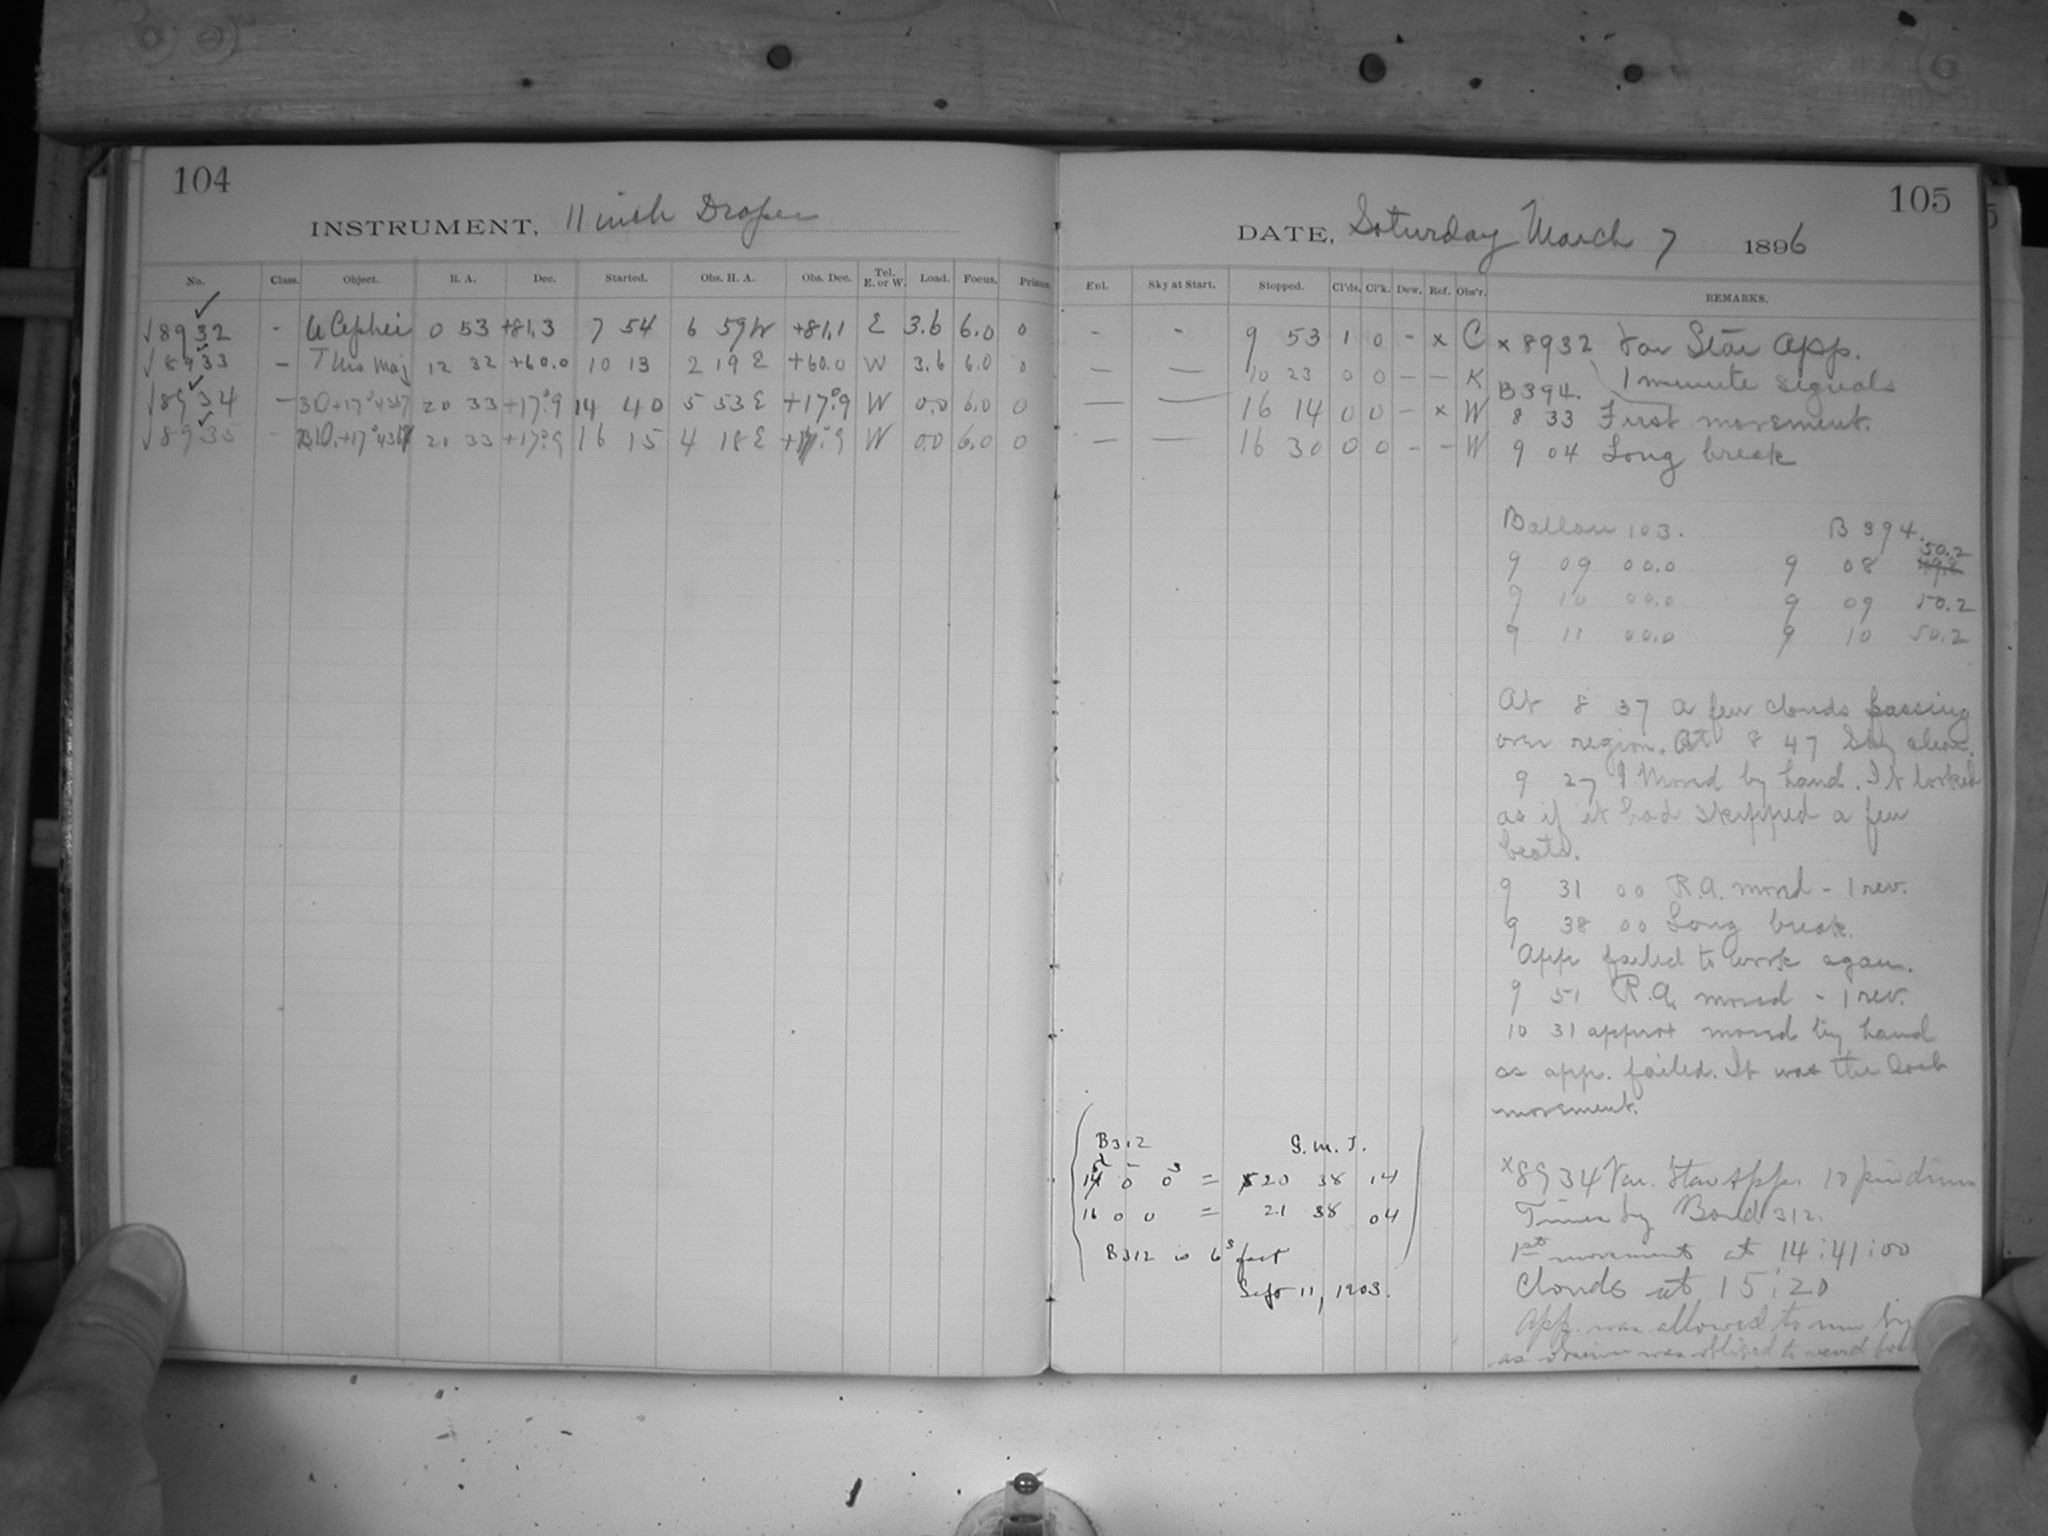 104
INSTRUMENT, 11 inch Draper
No. Class. Object. R. A. Dec. Started. Obs. H. A. Obs. Dec. Tel. E. or W. Load. Focus. Prisms.
√8932 - U Cephei 0 53 +81.3 7 54 6 59 W +81.1 E 3.6 6.0 0
√8933 - T Urs Maj 12 32 +60.0 10 13 2 19 E +60.0 W 3.6 6.0 0
√8934 - BD+17°4367 20 33 +17°.9 14 40 5 53 E +17°.9 W 0.0 6.0 0
√8935 - BD.+17°4367 20 33 +17°.9 16 15 4 18 E +17°.9 W 0.0 6.0 0
105
DATE, Saturday March 7 1896
Enl. Sky at Start. Stopped. Cl'ds. Cl'k. Dew. Ref. Obs'r. REMARKS.
- - 9 53 1 0 - x C x 8932 Var Star App.
- - 10 23 0 0 - - K B 394. 1 minute signals
- - 16 14 0 0 - x W 8 33 First movement.
- - 16 30 0 0 - - W 9 04 Long break
Ballou 103. B 394.
9 09 00.0 9 08 50.2
9 10 00.0 9 09 50.2
9 11 00.0 9 10 50.2
At 8 37 a few clouds passing
over region. At 8 47 Sky clear.
9 27 Moved by hand. It looked
as if it had skipped a few
beats.
9 31 00 R.A. moved - 1 rev.
9 38 00 Long break.
App failed to work again.
9 51 R.A. moved - 1 rev.
10 31 approx moved by hand
as app. failed. It was the last
movement.
B312 G.M.T.
15 0 0s = 20 38 14
16 0 0 = 21 38 04
B312 is 6s fast
Sept 11, 1903.
x8934 Var. Star App. 10 pin drum
Times by Bond 312.
1st movement at 14:41:00
Clouds at 15:20
App. was allowed to run by
as observer was obliged to